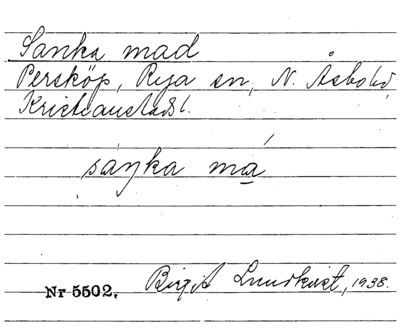 Sanka mad
Persköp, Rya sn, N. Åsbo hd,
Kristianstads l.
sáŋka má
Nr 5502. Birgit Lundkvist, 1938.